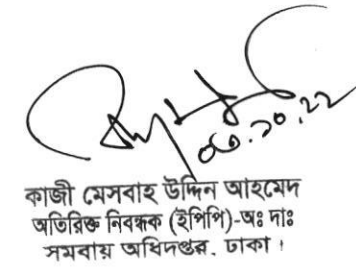 ০৩.১০.২২
কাজী মেসবাহ উদ্দিন আহমেদ
অতিরিক্ত নিবন্ধক (ইপিপি)-অঃ দাঃ
সমবায় অধিদপ্তর, ঢাকা।